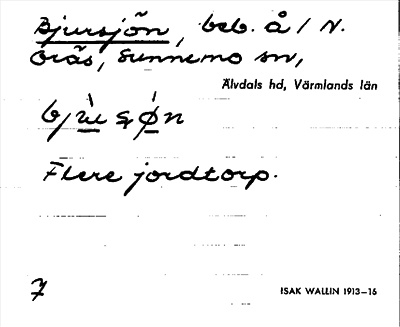 Bjursjön, beb. å / N.
Örås, Sunnemo sn,
Älvdals hd, Värmlands län
Flere jordtorp.
7
ISAK WALLIN 1913–16